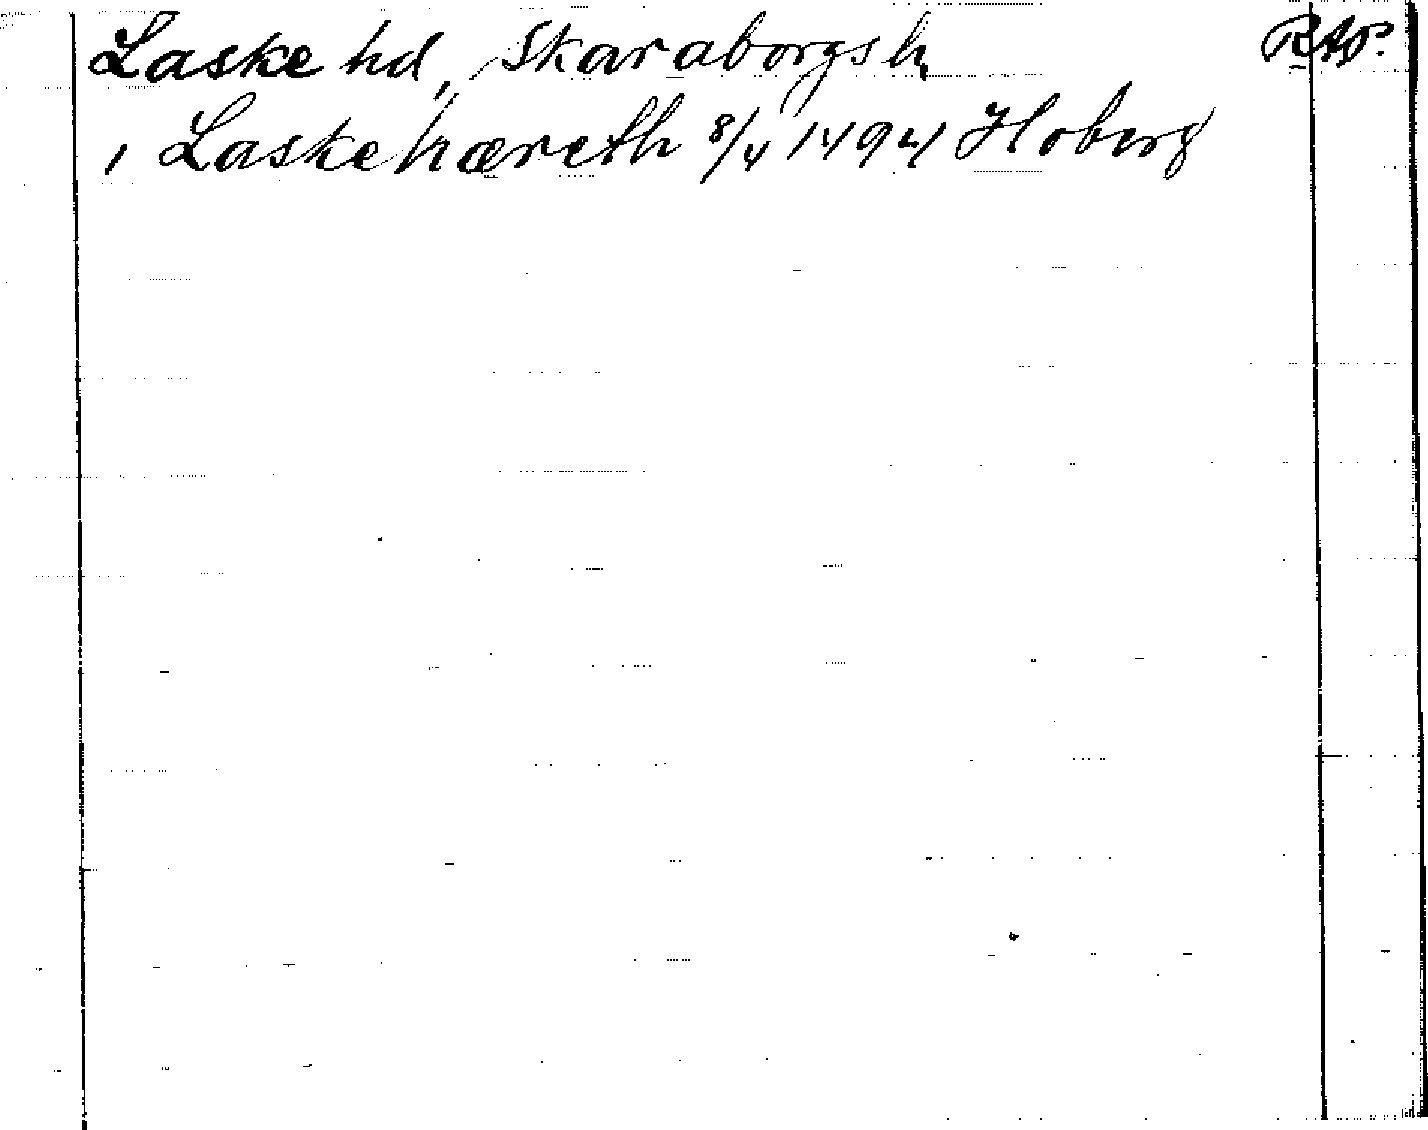 Laske hd, Skaraborgs l. RAP.
i Laskehæreth 8/4 1494 Hoberg